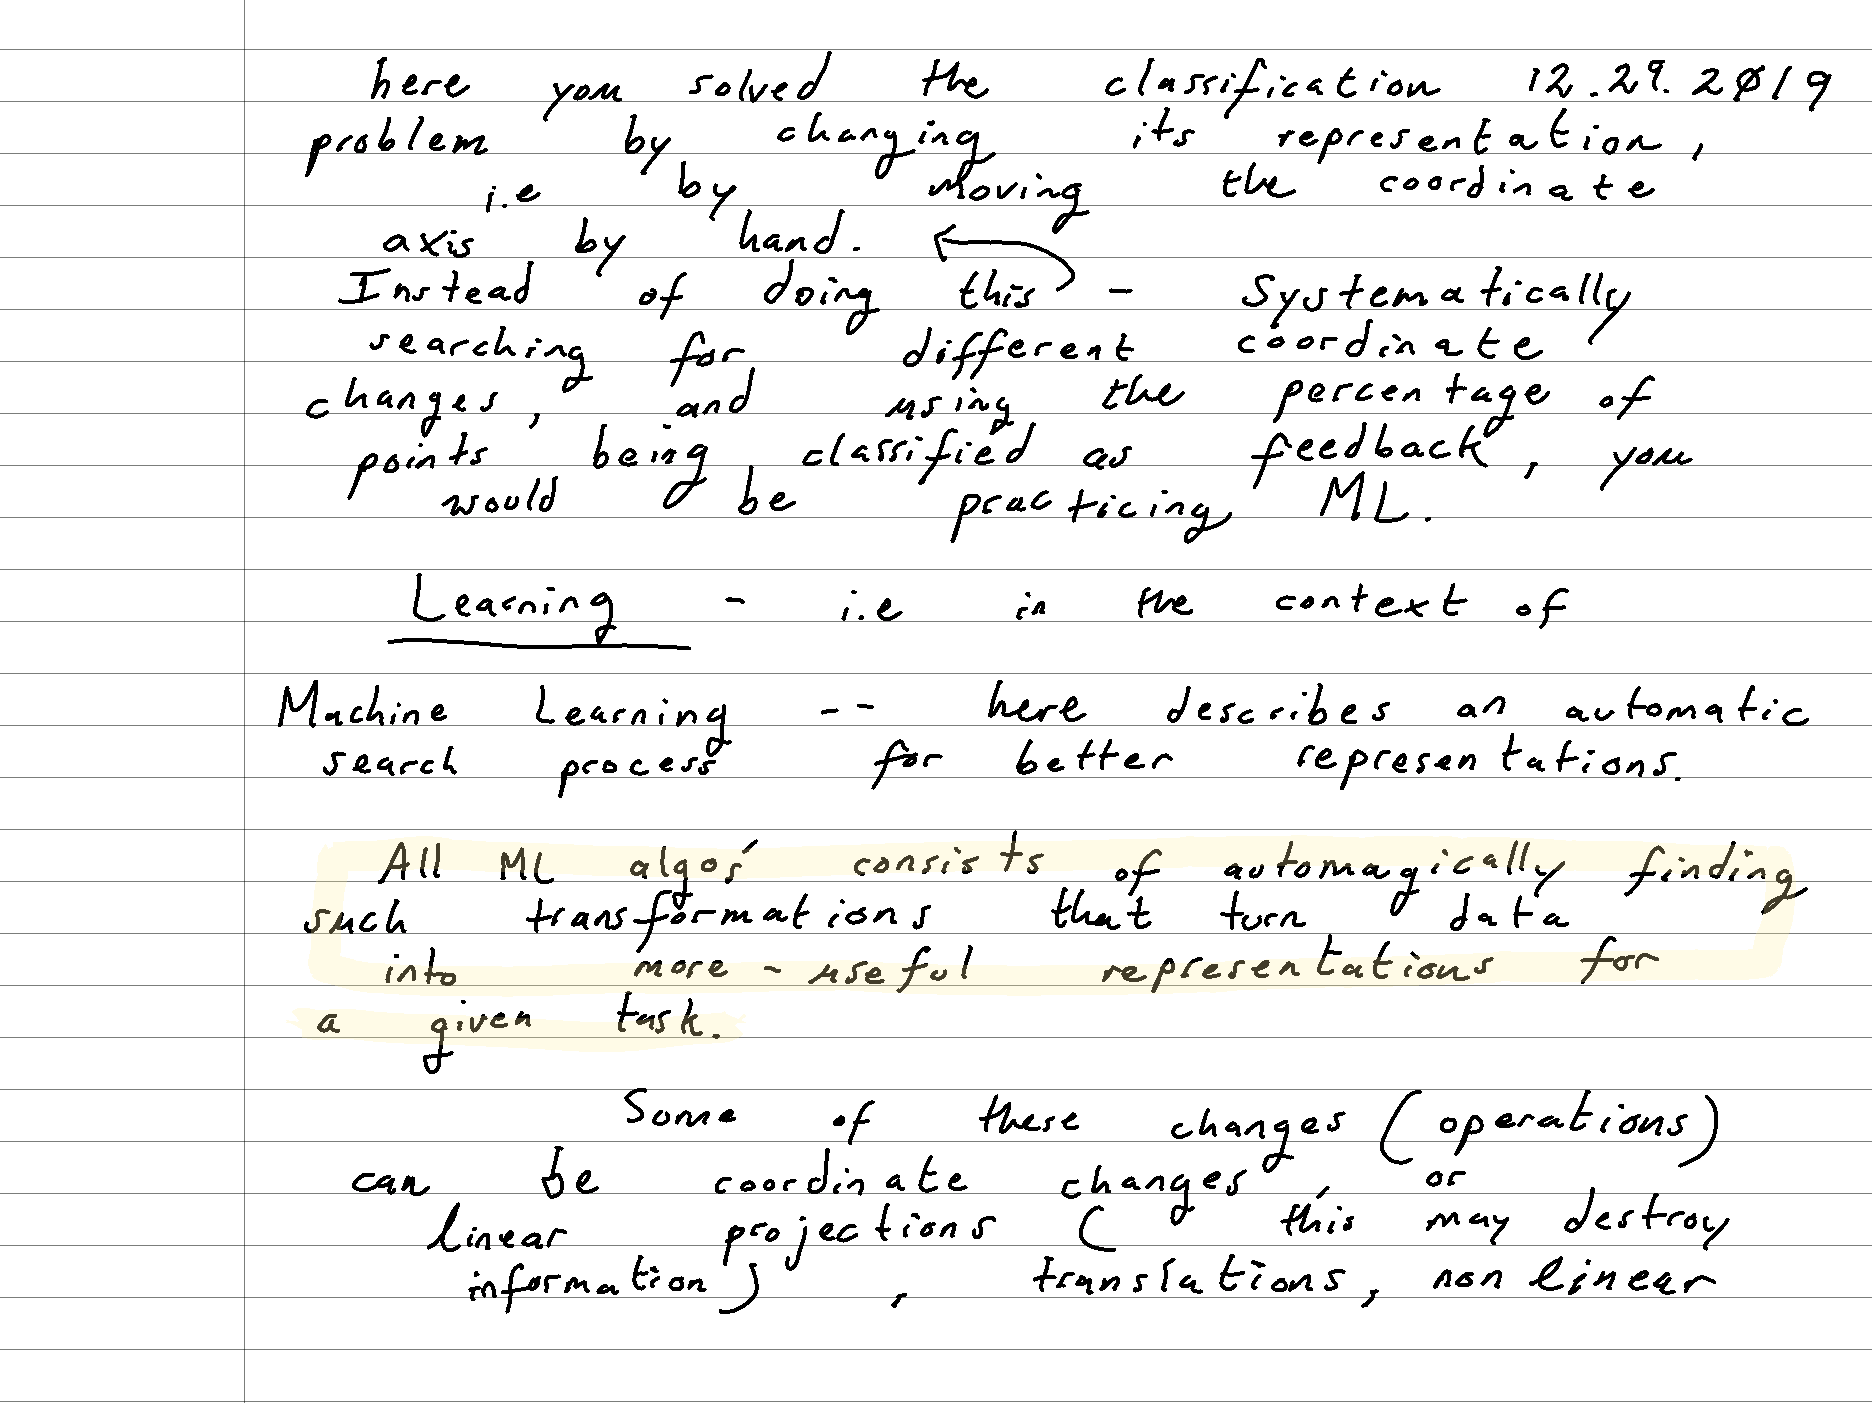 here you solved the classification 12.29.2019
problem by changing its representation,
i.e by moving the coordinate
axis by hand.
Instead of doing this - Systematically
searching for different coordinate
changes, and using the percentage of
points being classified as feedback, you
would be practicing ML.
Learning - i.e in the context of
Machine Learning -- here describes an automatic
search process for better representations.
All ML algos' consists of automagically finding
such transformations that turn data
into more-useful representations for
a given task.
Some of these changes (operations)
can be coordinate changes, or
linear projections (this may destroy
information), translations, non linear